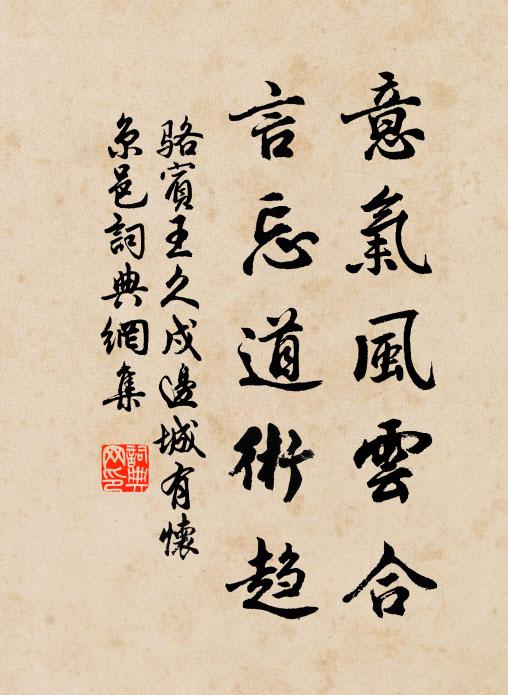 意氣風雲合
言忘道術趋
駱賓王久戍邊城有懷
京邑詞典網集
詞典
网印